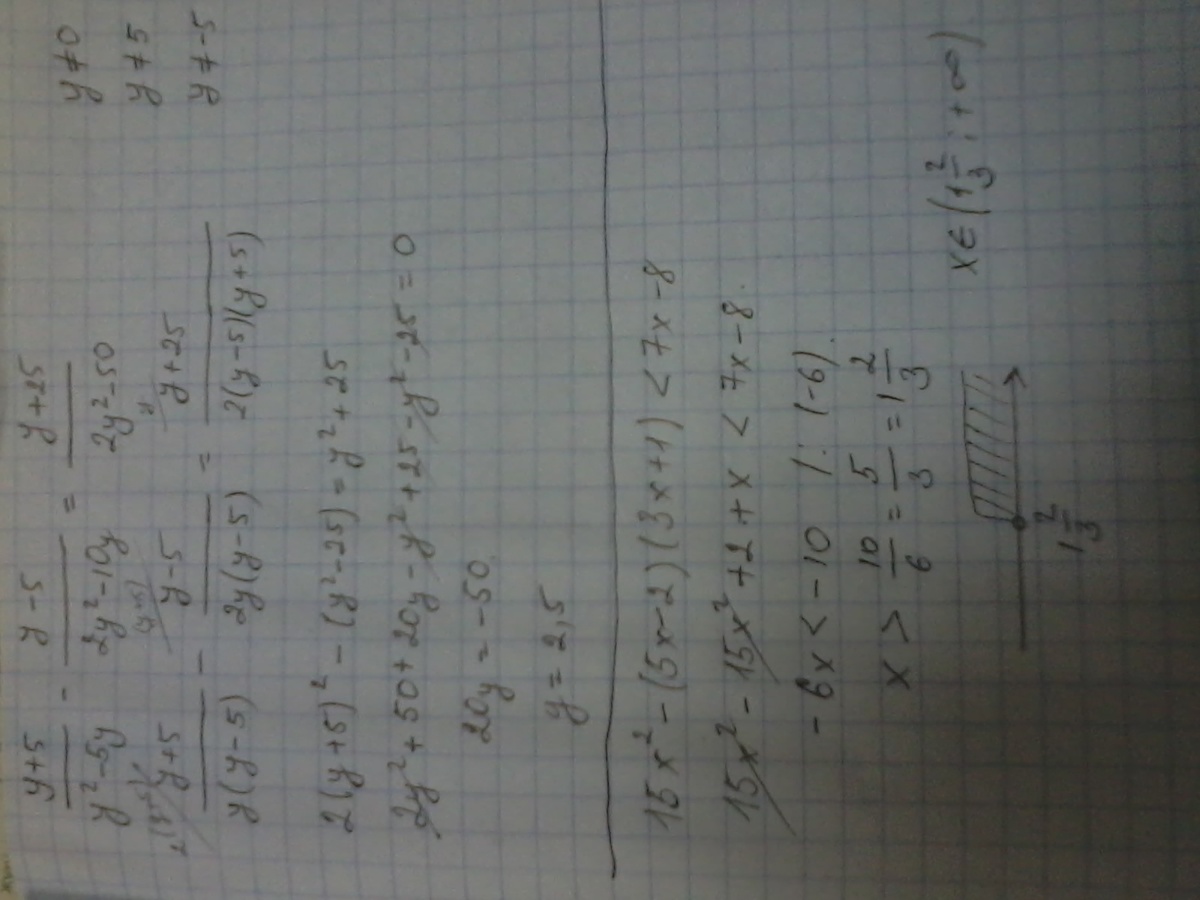 (y+5)/(y²-5y) - (y-5)/(2y²-10y) = (y+25)/(2y²-50) y≠0
2(y+5) (y+5) y y≠5
(y+5)/(y(y-5)) - (y-5)/(2y(y-5)) = (y+25)/(2(y-5)(y+5)) y≠-5
2(y+5)² - (y²-25) = y²+25
2y²+50+20y-y²+25-y²-25=0
20y=-50
y=2,5
15x²-(5x-2)(3x+1)<7x-8
15x²-15x²+2+x<7x-8.
-6x<-10 |:(-6).
x>10/6=5/3=1 2/3
1 2/3
x∈(1 2/3;+∞)